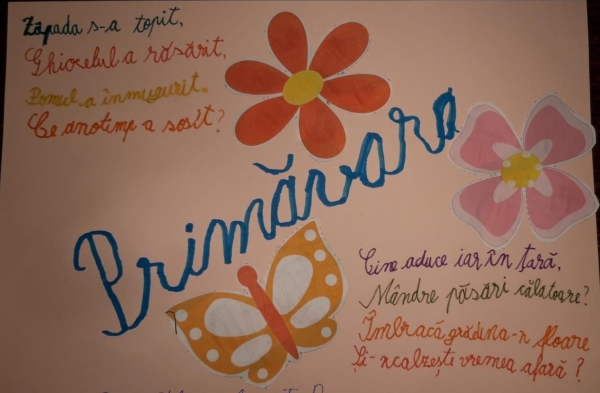 Zăpada s-a topit,
Ghiocelul a răsărit,
Pomul a înmugurit.
Ce anotimp a sosit?
Primăvara
Cine aduce iar în țară,
Mândre păsări călatoare?
Îmbracă grădina-n floare
Și-ncalzești vremea afară?